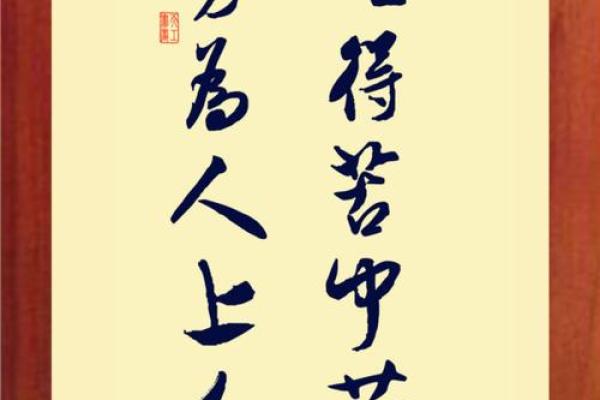 得苦中
方為人上